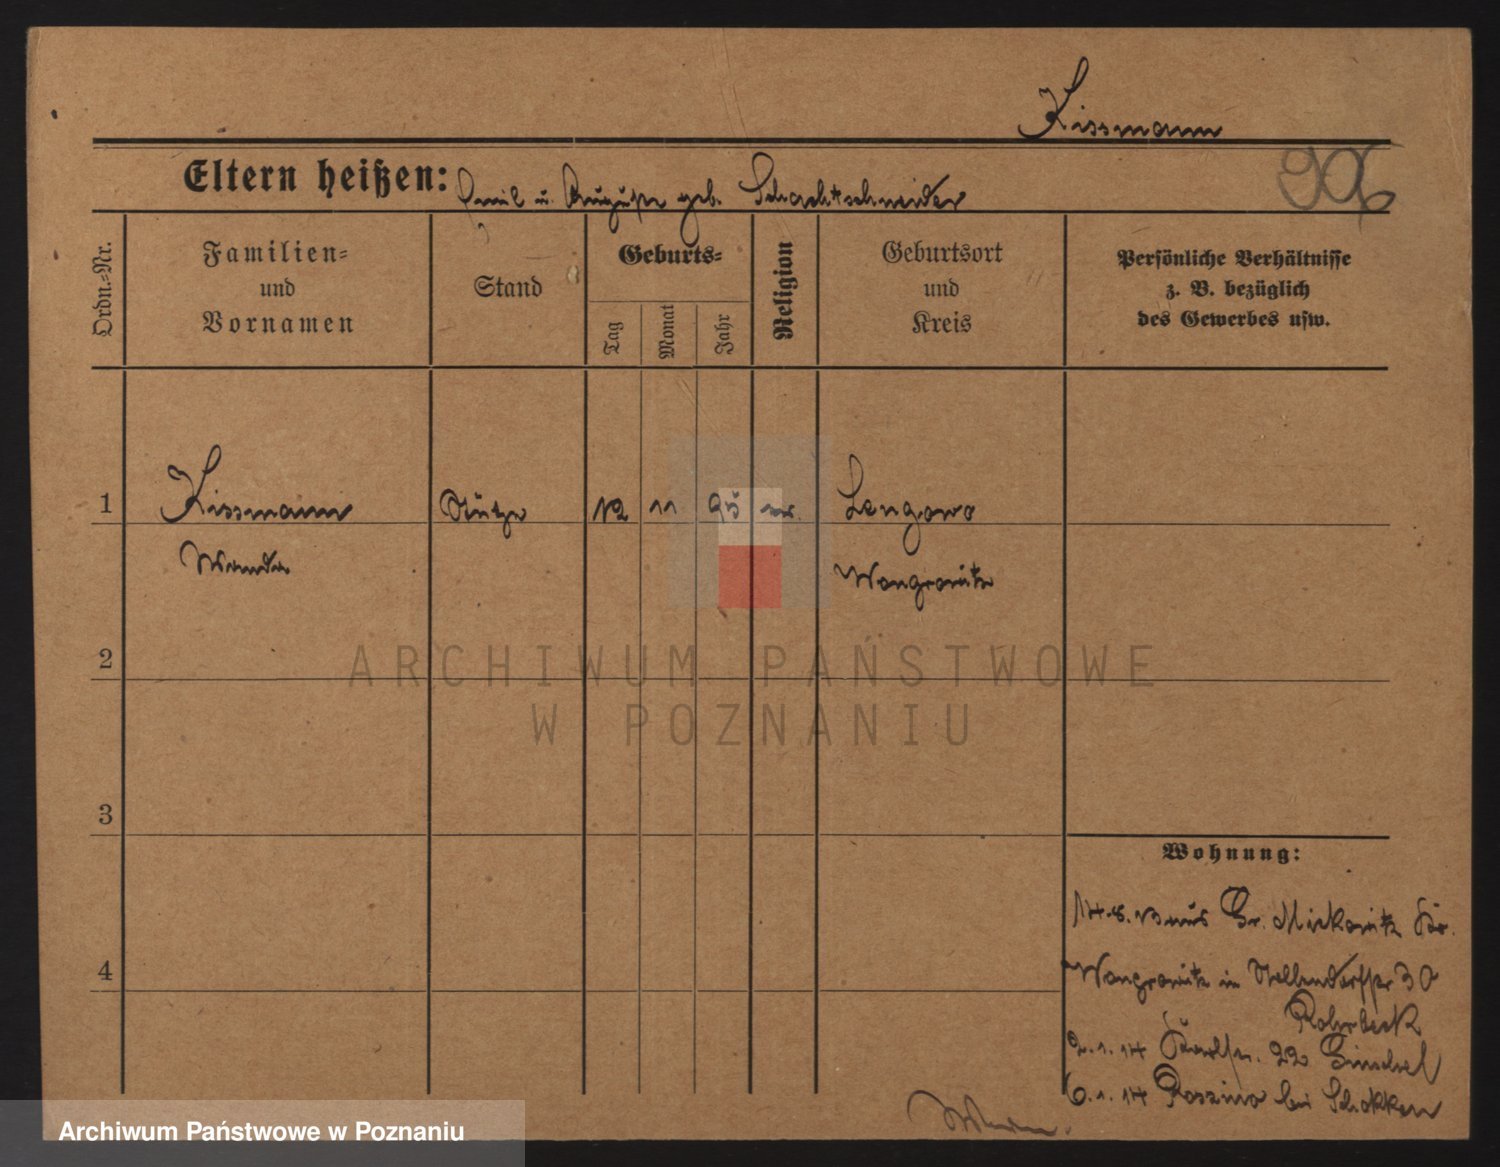 Kissmann
Eltern heißen: Emil u. Auguste geb. Schachtschneider
906
Ordn.-Nr.
Familien- und Vornamen
Stand
Geburts-
Tag
Monat
Jahr
Religion
Geburtsort und Kreis
Persönliche Verhältnisse z. B. bezüglich des Gewerbes usw.
1 Kissmann Stütze 12 11 95 ev. Lengowo
Wanda Wongrowitz
2
3
4
ARCHIWUM PAŃSTWOWE
W POZNANIU
Wohnung:
14.8.13 aus Gr. Mirkowitz Kr.
Wongrowitz in Nollendorfstr 30
Rohrbeck
2.1.14 Karlstr. 22
6.1.14 bei Schokken
Archiwum Państwowe w Poznaniu